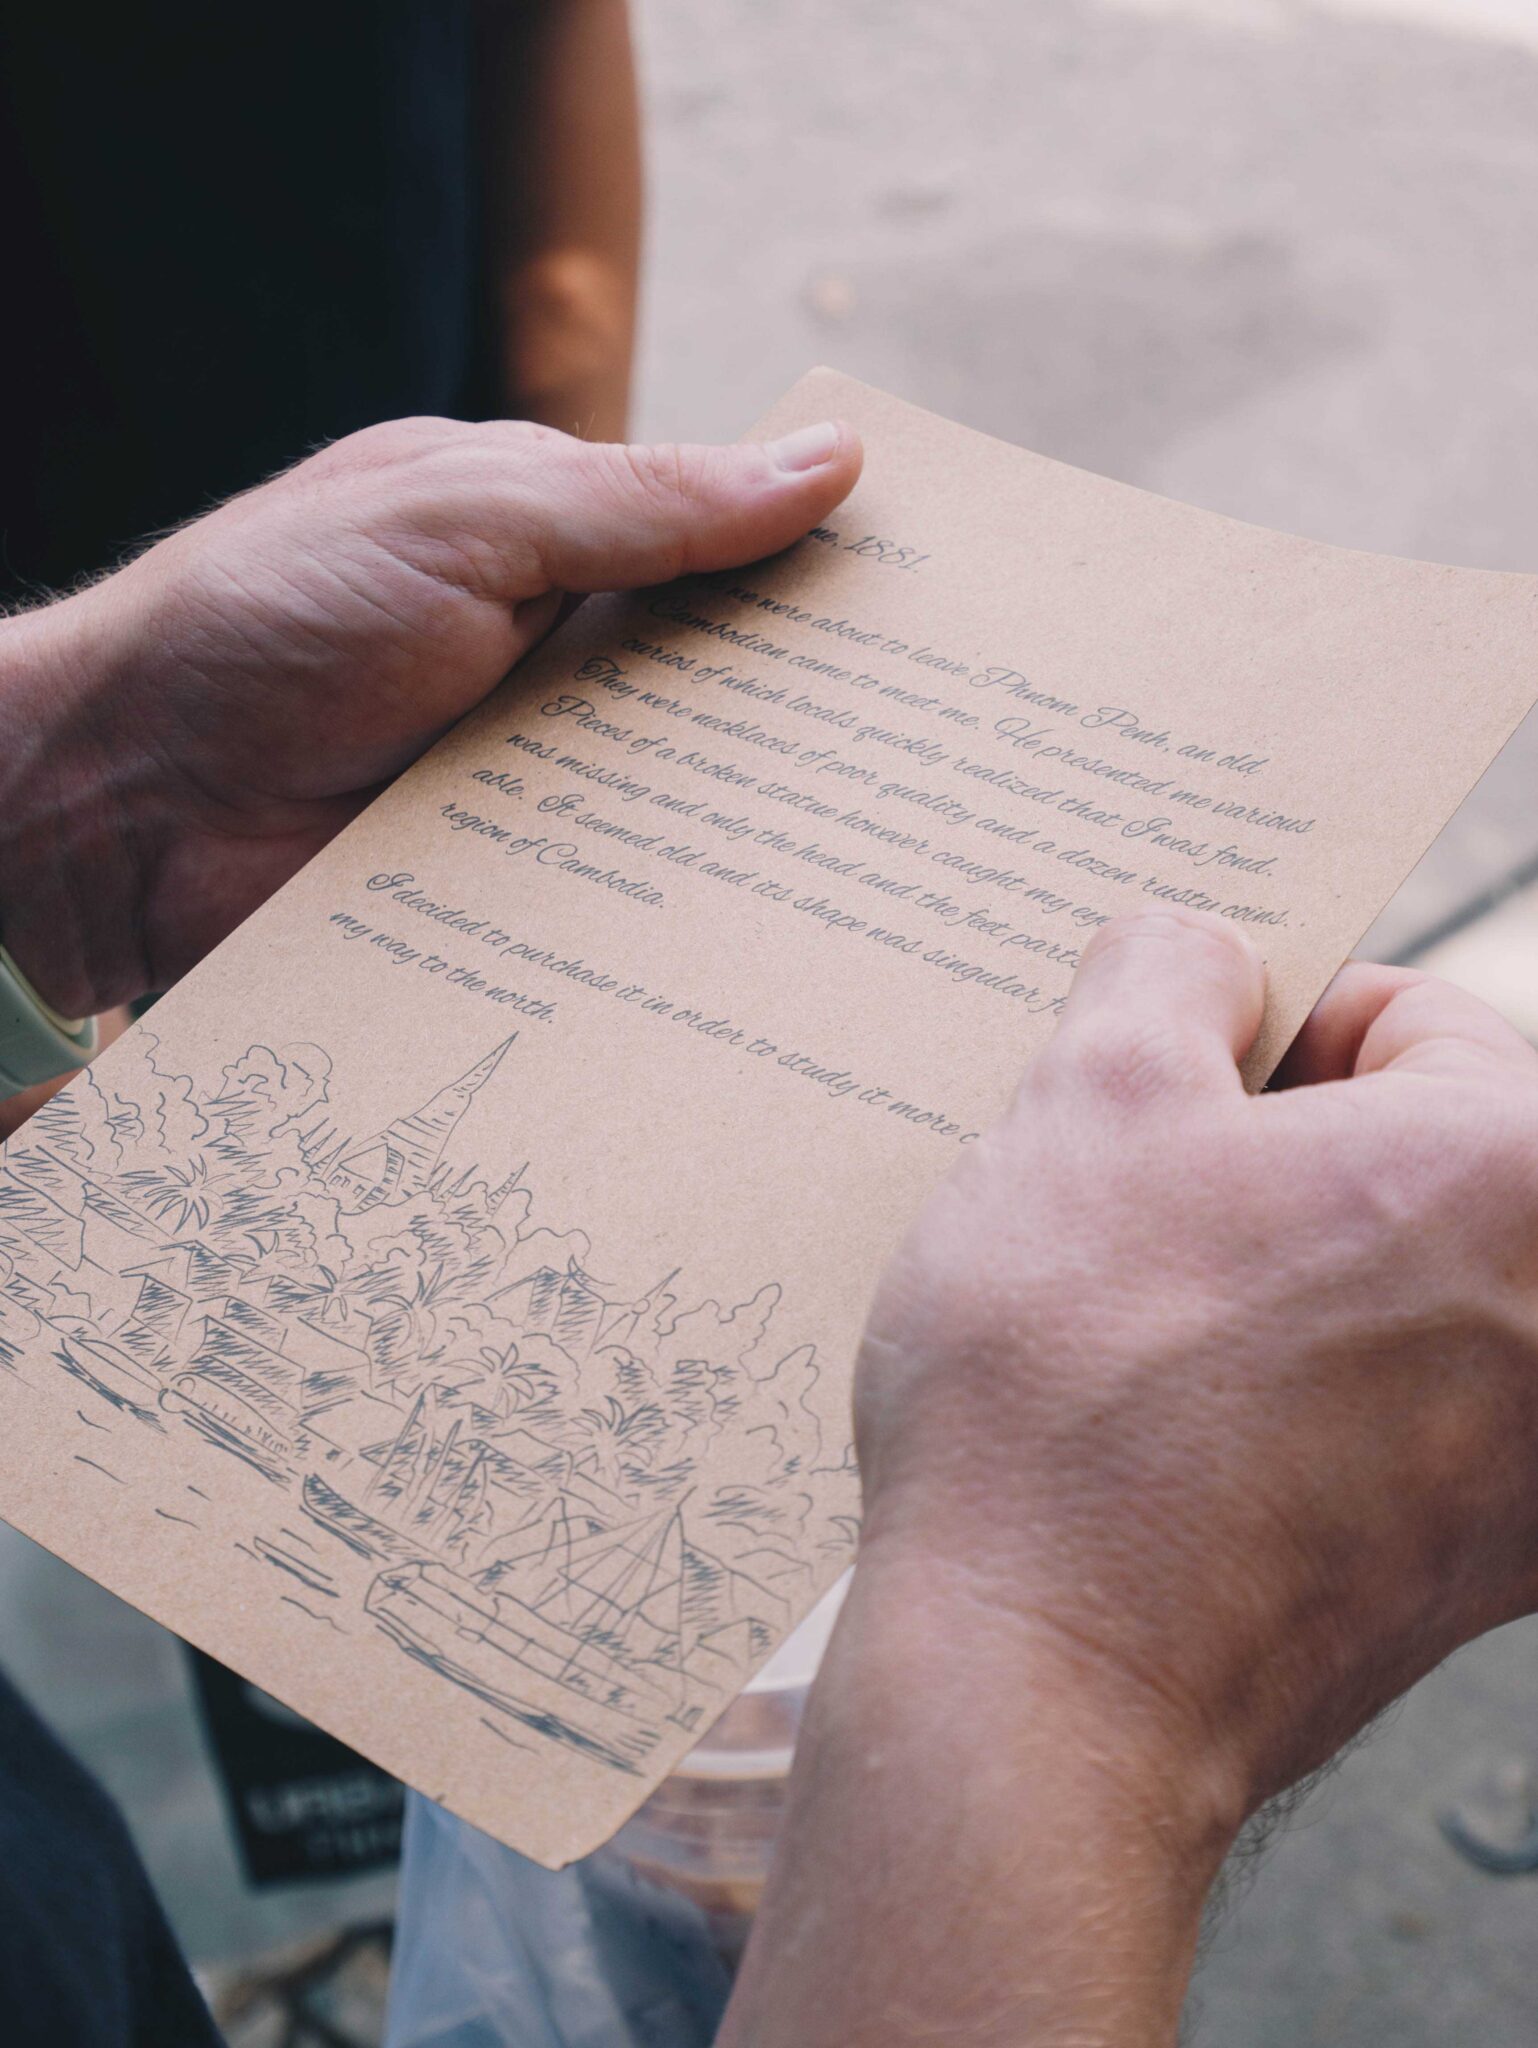 1881.
we were about to leave Phnom Penh, an old
Cambodian came to meet me. He presented me various
curios of which locals quickly realized that I was fond.
They were necklaces of poor quality and a dozen rusty coins..
Pieces of a broken statue however caught my eye
was missing and only the head and the feet parts
able. It seemed old and its shape was singular
region of Cambodia.
I decided to purchase it in order to study it more
my way to the north.